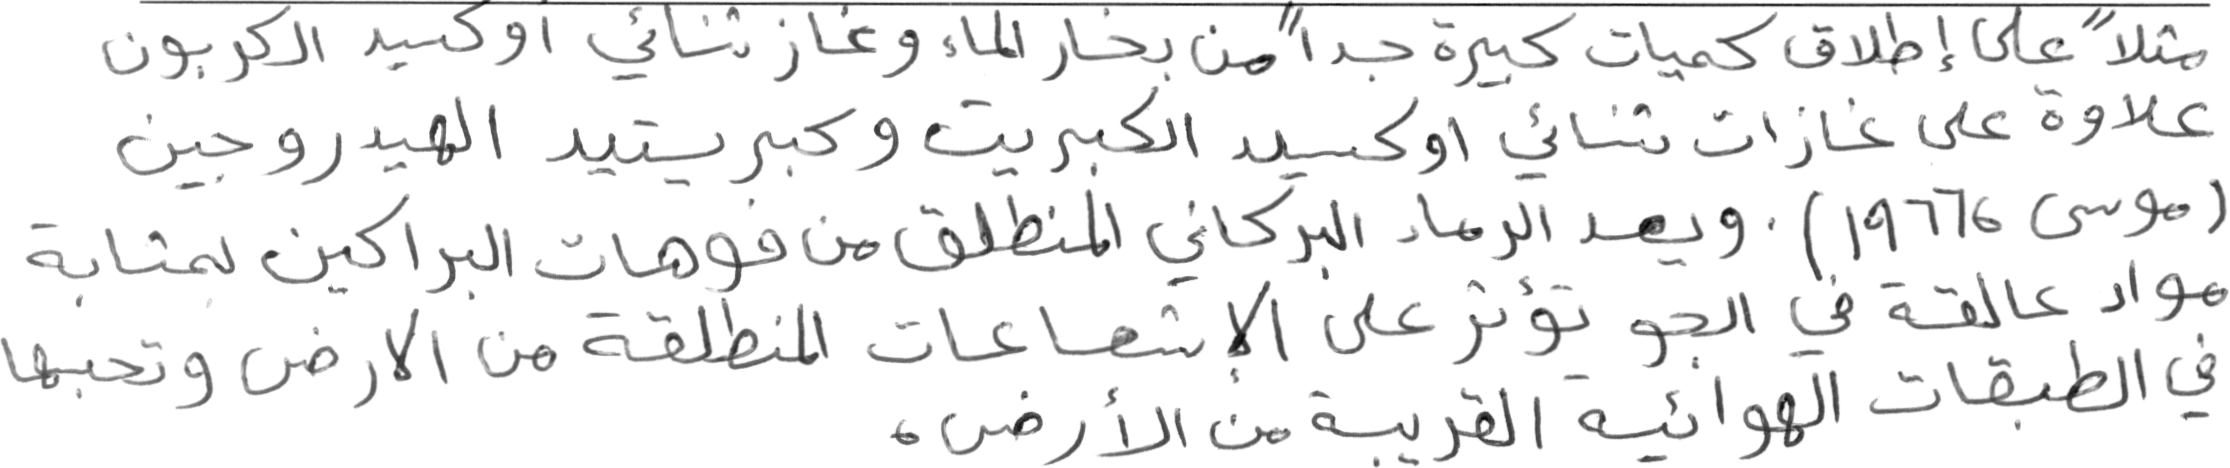 مثلاً على إطلاق كميات كبيرة جداً من بخار الماء وغاز ثنائي اوكسيد الكربون
علاوة على غازات ثنائي اوكسيد الكبريت وكبريتيد الهيدروجين
(موسى ،١٩٦٦). ويعد الرماد البركاني المنطلق من فوهات البراكين بمثابة
مواد عالقة في الجو تؤثر على الإشعاعات المنطلقة من الارض وتحبسها
في الطبقات الهوائية القريبة من الأرض.